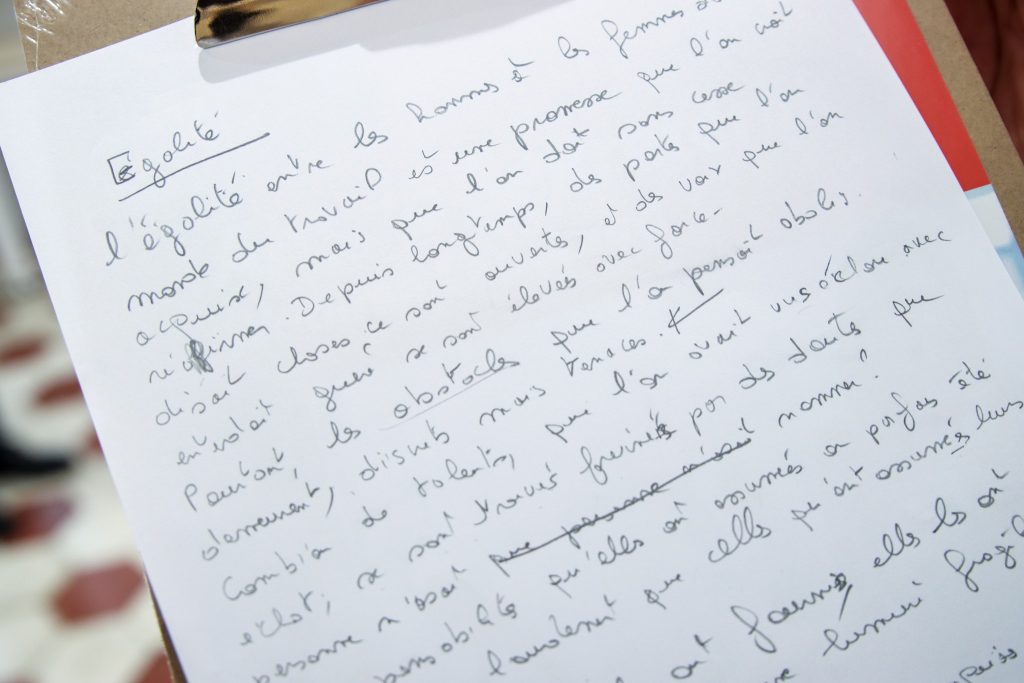 Égalité
l'égalité entre les hommes et les femmes au
monde du travail est une promesse que l'on croit
acquise, mais que l'on doit sans cesse
réaffirmer. Depuis longtemps, des portes que l'on
disait closes se sont ouvertes, et des voix que l'on
entendait guère se sont élevées avec force.
Pourtant, les obstacles que l'on pensait abolis
demeurent, discrets mais tenaces.
Combien de talents, que l'on avait vus éclore avec
éclat, se sont trouvés freinés par des doutes que
personne n'osait que personne n'osait nommer !
qu'elles ont assumées ou parfois été
que celles qu'ont assumées leurs
ont elles les ont